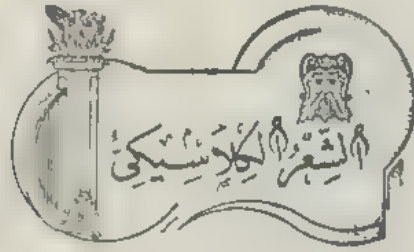 الشِّعْرُ الكِلَاسِيكِيُّ